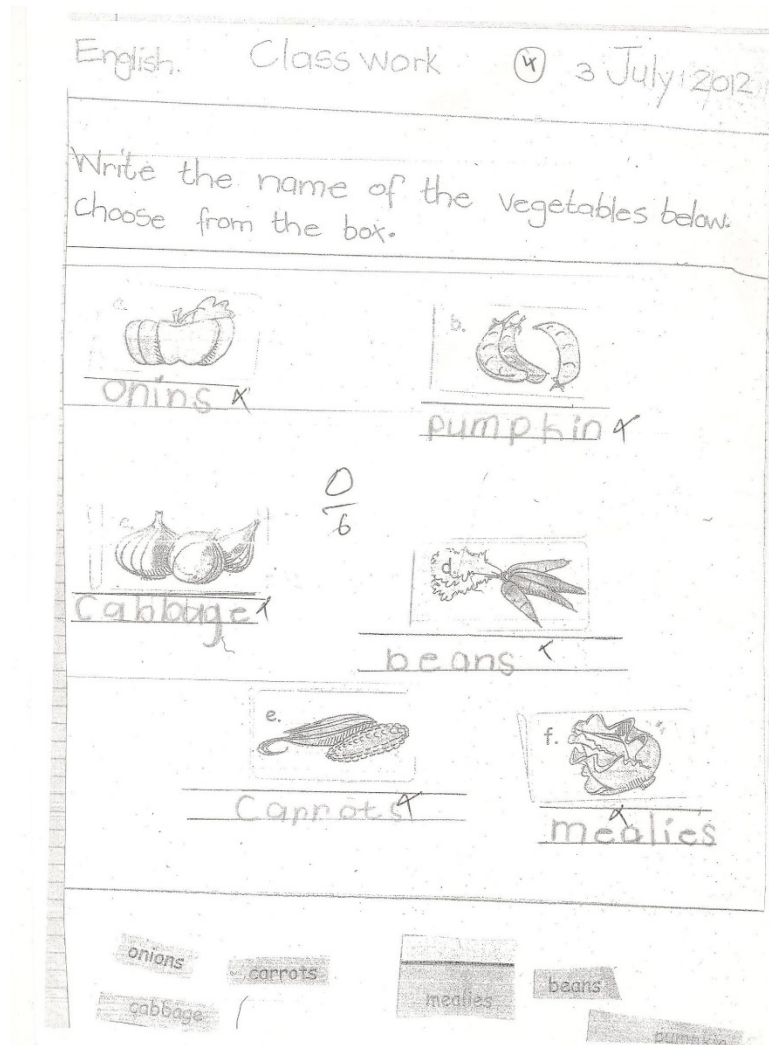 English. Class work 4 3 July 2012
Write the name of the vegetables below.
choose from the box.
a.
b.
onins x
pumpkin x
0/6
c.
d.
Cabbage x
beans x
e.
f.
Carrots x
mealies x
onions
carrots
mealies
beans
cabbage
pumpkin